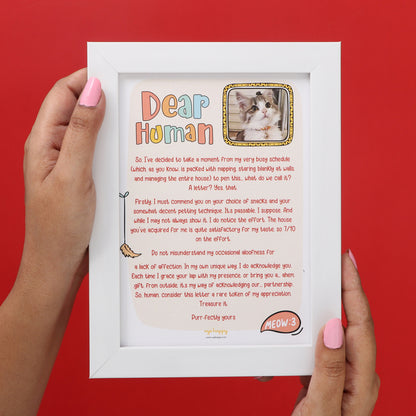 Dear
Human
So, I've decided to take a moment from my very busy schedule
(which, as you know, is packed with napping, staring blankly at walls
and managing the entire house) to pen this... what do we call it?
A letter? Yes, that.
Firstly, I must commend you on your choice of snacks and your
somewhat decent petting technique. It's passable, I suppose. And
while I may not always show it, I do notice the effort. The house
you've acquired for me is quite satisfactory for my taste, so 7/10
on the effort.
Do not misunderstand my occasional aloofness for
a lack of affection. In my own unique way, I do acknowledge you.
Each time I grace your lap with my presence, or bring you a... ahem,
gift, from outside, it's my way of acknowledging our... partnership.
So, human, consider this letter a rare token of my appreciation.
Treasure it.
Purr-fectly yours
MEOW:3